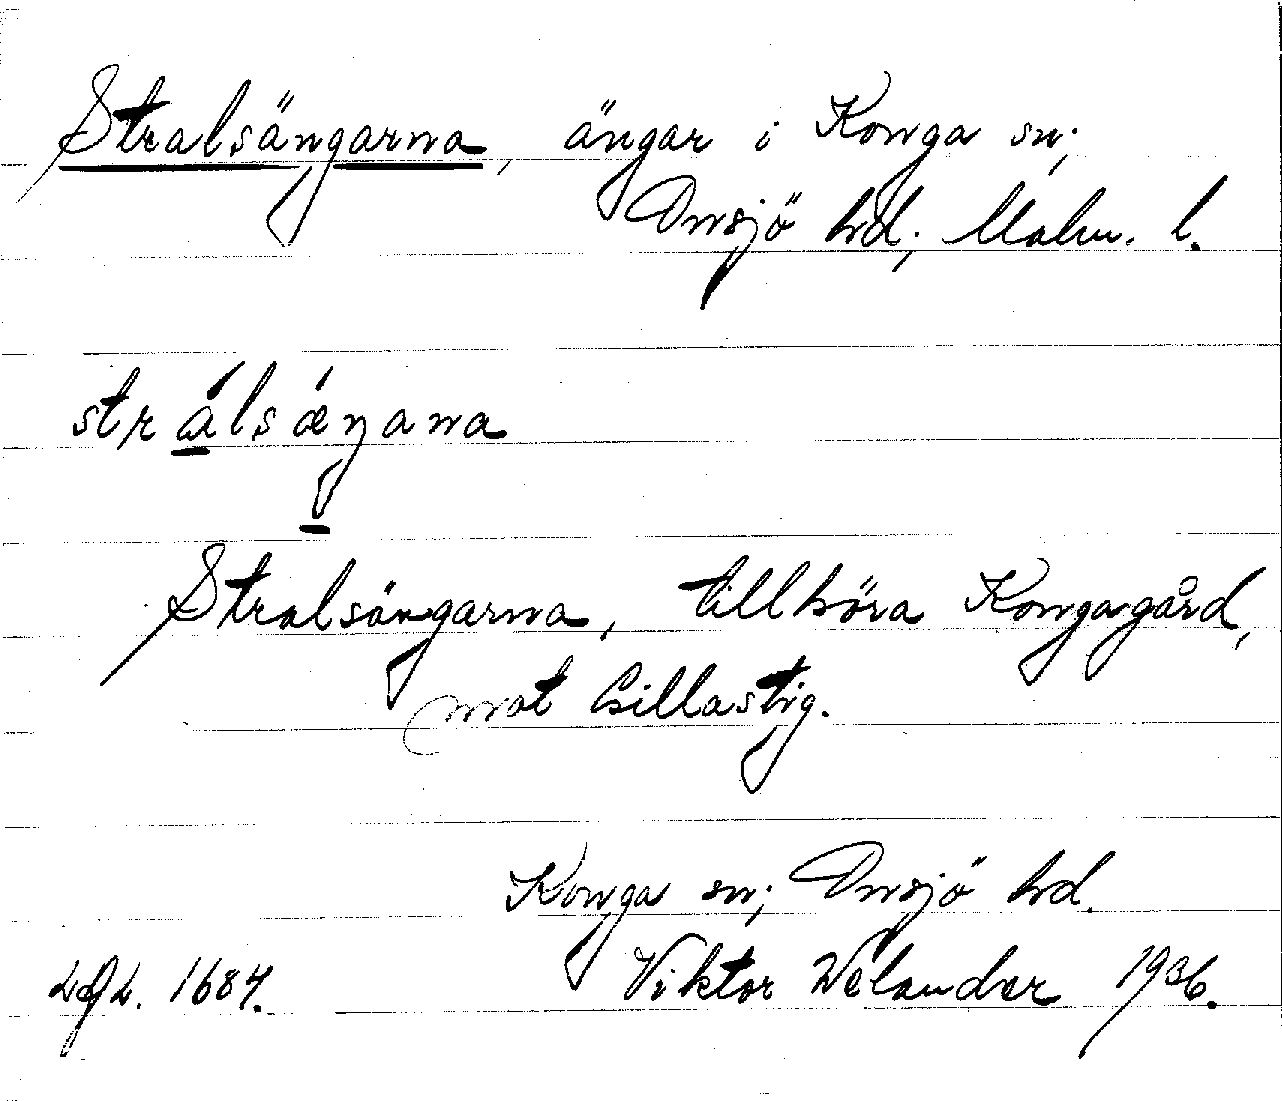 Stralsängarna, ängar i Konga sn;
Onsjö hd; Malm. l.
strálsǽŋana
Stralsängarna, tillhöra Kongagård,
mot Gillastig.
Konga sn; Onsjö hd.
Viktor Welander 1936.